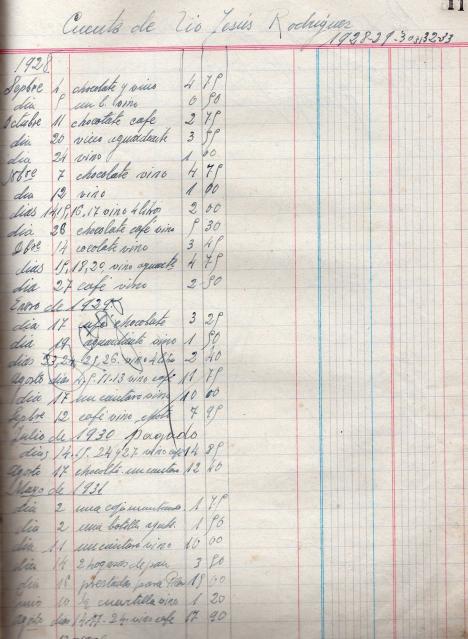 11
Cuenta de Tio Jesús Rodriguez
1928-29-30-31-32-33
1928
Sepbre 4 chocolate y vino 4 75
dia 5 un b. vino 0 50
Octubre 11 chocolate cafe 2 75
dia 20 vino aguardiente 3 95
dia 24 vino 1 00
Nobre 7 chocolate vino 4 75
dia 12 vino 1 00
dias 14, 15, 16, 17 vino 4 litros 2 00
dia 28 chocolate café vino 5 30
Dbre 14 cocolate vino 3 45
dias 15, 18, 20, vino aguardte 4 75
dia 27 café vino 2 50
Enero de 1929
dia 17 chocolate 3 25
dia 19 aguardiente vino 1 50
dias 24, 25, 26. vino 4 litro 2 40
agosto dias 4, 5, 11-13 vino café 11 75
dia 17 un cantaro vino 10 00
Sepbre 12 café vino 7 95
Julio de 1930 pagado
dias 14. 15. 24 y 27 vino café 14 85
agosto 17 chocolte. un cantaro 12 40
Marzo de 1931
dia 2 una caja 1 75
dia 2 una botilla aguate. 1 50
dia 11 un cantaro vino 10 00
dia 14 2 hogazas de pan 3 50
dia 15 prestadas para 15 00
junio 10 ½ cuartilla vino 1 20
agosto dias 14-17-24. vino cafe 17 90